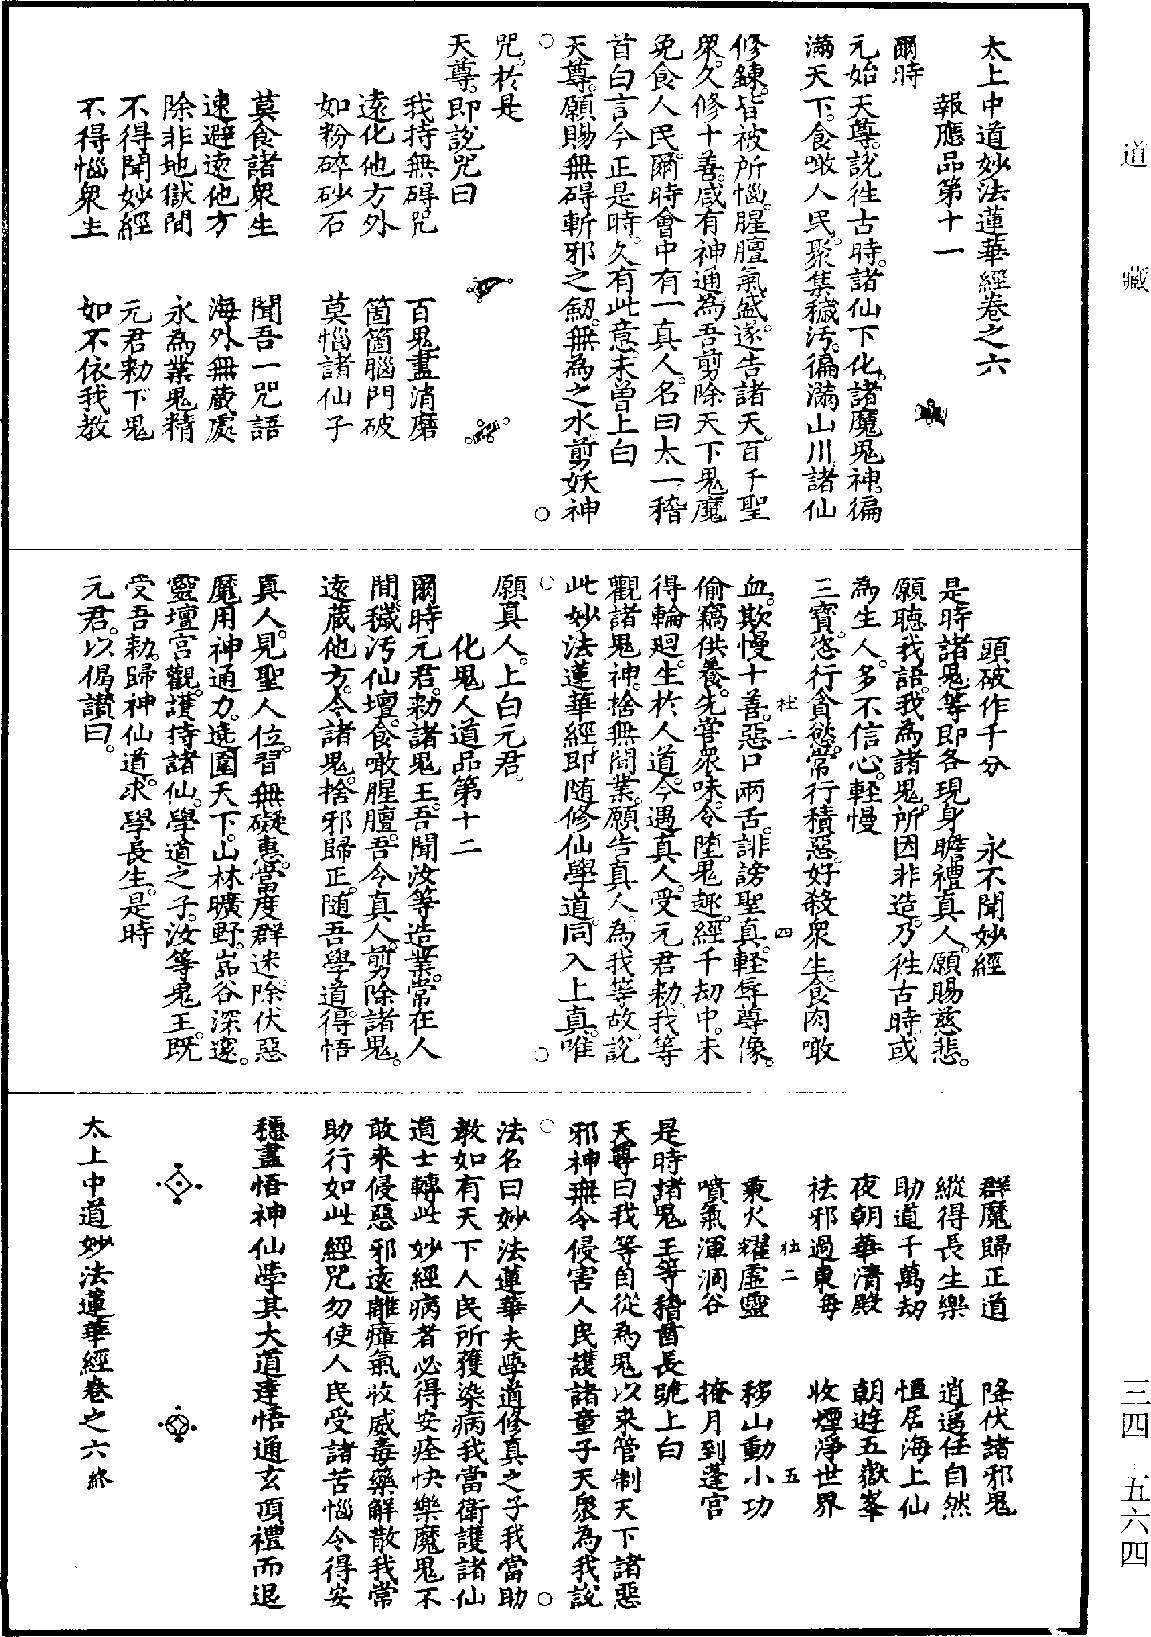 太上中道妙法蓮華經卷之六
報應品第十一
爾時
元始天尊。說往古時。諸仙下化。諸魔鬼神。徧
滿天下。食噉人民。聚集穢汚。徧滿山川。諸仙
修鍊。皆被所惱。腥膻氣盛。遂告諸天。百千聖
衆。久修十善。咸有神通。為吾剪除天下鬼魔
免食人民。爾時會中有一真人。名曰太一。稽
首白言今正是時。久有此意。未曾上白
天尊。願賜無碍斬邪之劒。無為之水。剪妖神
咒。於是
天尊。即說咒曰
我持無碍咒　百鬼盡消磨
遠化他方外　箇箇腦門破
如粉碎砂石　莫惱諸仙子
莫食諸衆生　聞吾一咒語
速避遠他方　海外無藏處
除非地獄間　永為業鬼精
不得聞妙經　元君勑下鬼
不得惱衆生　如不依我教
頭破作千分　永不聞妙經
是時諸鬼等即各現身瞻禮真人。願賜慈悲。
願聽我語。我為諸鬼。所因非造。乃往古時。或
為生人。多不信心。輕慢
三寶。恣行貪慾。常行積惡。好殺衆生。食肉噉
血。欺慢十善。惡口兩舌。誹謗聖真。輕辱尊像。
偷竊供養。先嘗衆味。令墮鬼趣。經千劫中。未
得輪廻。生於人道。今遇真人。受元君勑。我等
觀諸鬼神。捨無間業。願告真人。為我等故。說
此妙法蓮華經。即隨修仙學道。同入上真。唯
願真人。上白元君。
化鬼人道品第十二
爾時元君。勑諸鬼王。吾聞汝等造業。常在人
間。穢汚仙壇。食噉腥膻。吾令真人。剪除諸鬼。
遠藏他方。令諸鬼。捨邪歸正。隨吾學道。得悟
真人。見聖人位。習無礙惠。當度群迷。除伏惡
魔。用神通力。遶圍天下。山林曠野。嵓谷深邃。
靈壇宮觀。護持諸仙。學道之子。汝等鬼王。既
受吾勑。歸神仙道。求學長生。是時
元君。以偈讚曰。
群魔歸正道　降伏諸邪鬼
縱得長生樂　逍遥任自然
助道千萬劫　恒居海上仙
夜朝華清殿　朝遊五嶽峯
祛邪過東海　收煙淨世界
乘火耀虛靈　移山動小功
噴氣渾洞谷　掩月到蓬宮
是時諸鬼王等稽首長跪上白
天尊曰我等自從為鬼以來管制天下諸惡
邪神無令侵害人民護諸童子天衆為我說
法名曰妙法蓮華夫學道修真之子我當助
教如有天下人民所獲染病我當衛護諸仙
道士轉此妙經病者必得安痊快樂魔鬼不
敢來侵惡邪遠離瘴氣收威毒藥解散我常
助行如此經咒勿使人民受諸苦惱令得安
穩盡悟神仙學其大道達悟通玄頂禮而退
太上中道妙法蓮華經卷之六終
杜二　四
杜二　五
道藏
三四　五六四